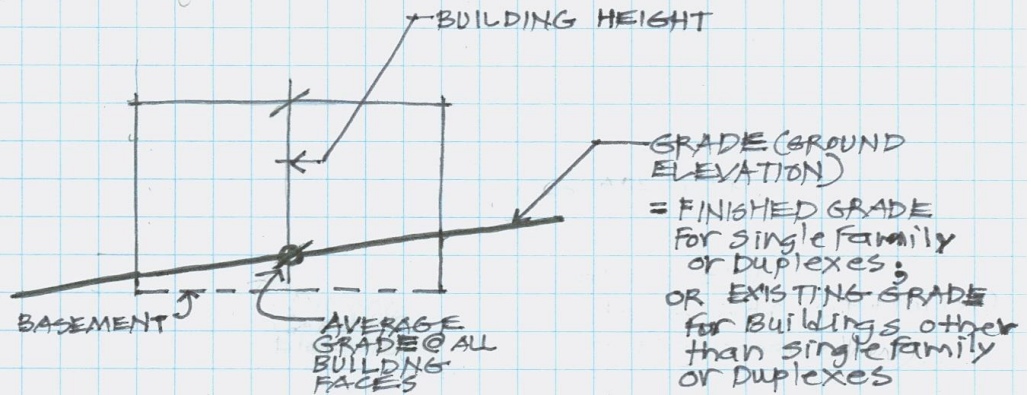 BUILDING HEIGHT
GRADE (GROUND
ELEVATION)
= FINISHED GRADE
For single Family
or Duplexes;
OR EXISTING GRADE
For Buildings other
than single family
or Duplexes
BASEMENT
AVERAGE
GRADE @ ALL
BUILDNG
FACES